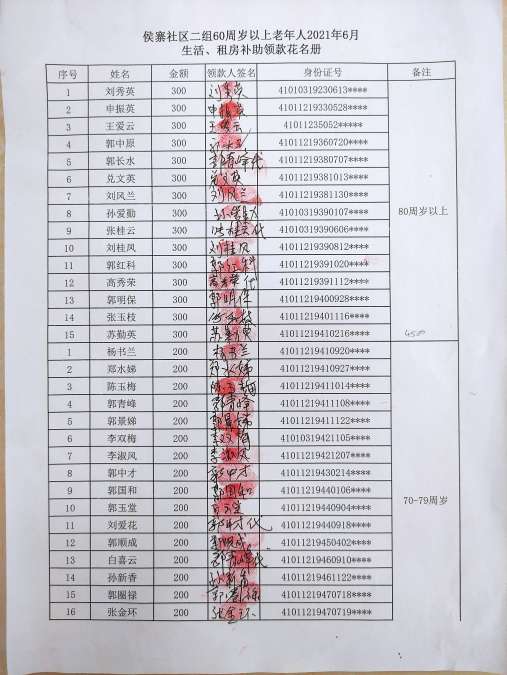 侯寨社区二组60周岁以上老年人2021年6月
生活、租房补助领款花名册
序号 姓名 金额 领款人签名 身份证号 备注
1 刘秀英 300 刘秀英 41010319230613****
2 申振英 300 申振英 41011219330528****
3 王爱云 300 王爱云 41011235052*****
4 郭中原 300 41011219360720****
5 郭长水 300 41011219380707****
6 兑文英 300 41011219381013****
7 刘风兰 300 刘风兰 41011219381130****
8 孙爱勤 300 孙爱勤 41010319390107**** 80周岁以上
9 张桂云 300 张桂云代 41010319390606****
10 刘桂风 300 刘桂风 41011219390812****
11 郭红科 300 郭红科 41011219391020****
12 高秀荣 300 41011219391112****
13 郭明保 300 郭明保 41011219400928****
14 张玉枝 300 41011219401116****
15 苏勤英 300 41011219410216**** 4500
1 杨书兰 200 杨书兰 41011219410920****
2 郑水娣 200 郑水娣 41011219410927****
3 陈玉梅 200 陈玉梅 41011219411014****
4 郭青峰 200 郭青峰 41011219411108****
5 郭景娣 200 郭景娣 41011219411122****
6 李双梅 200 41010319421105****
7 李淑风 200 李淑风 41011219421207****
8 郭中才 200 郭中才 41011219430214****
9 郭国和 200 郭国和 41011219440106**** 70-79周岁
10 郭玉堂 200 41011219440904****
11 刘爱花 200 41011219440918****
12 郭顺成 200 郭顺成 41011219450402****
13 白喜云 200 41011219460910****
14 孙新香 200 孙新香 41011219461122****
15 郭圈禄 200 41011219470718****
16 张金环 200 张金环 41011219470719****